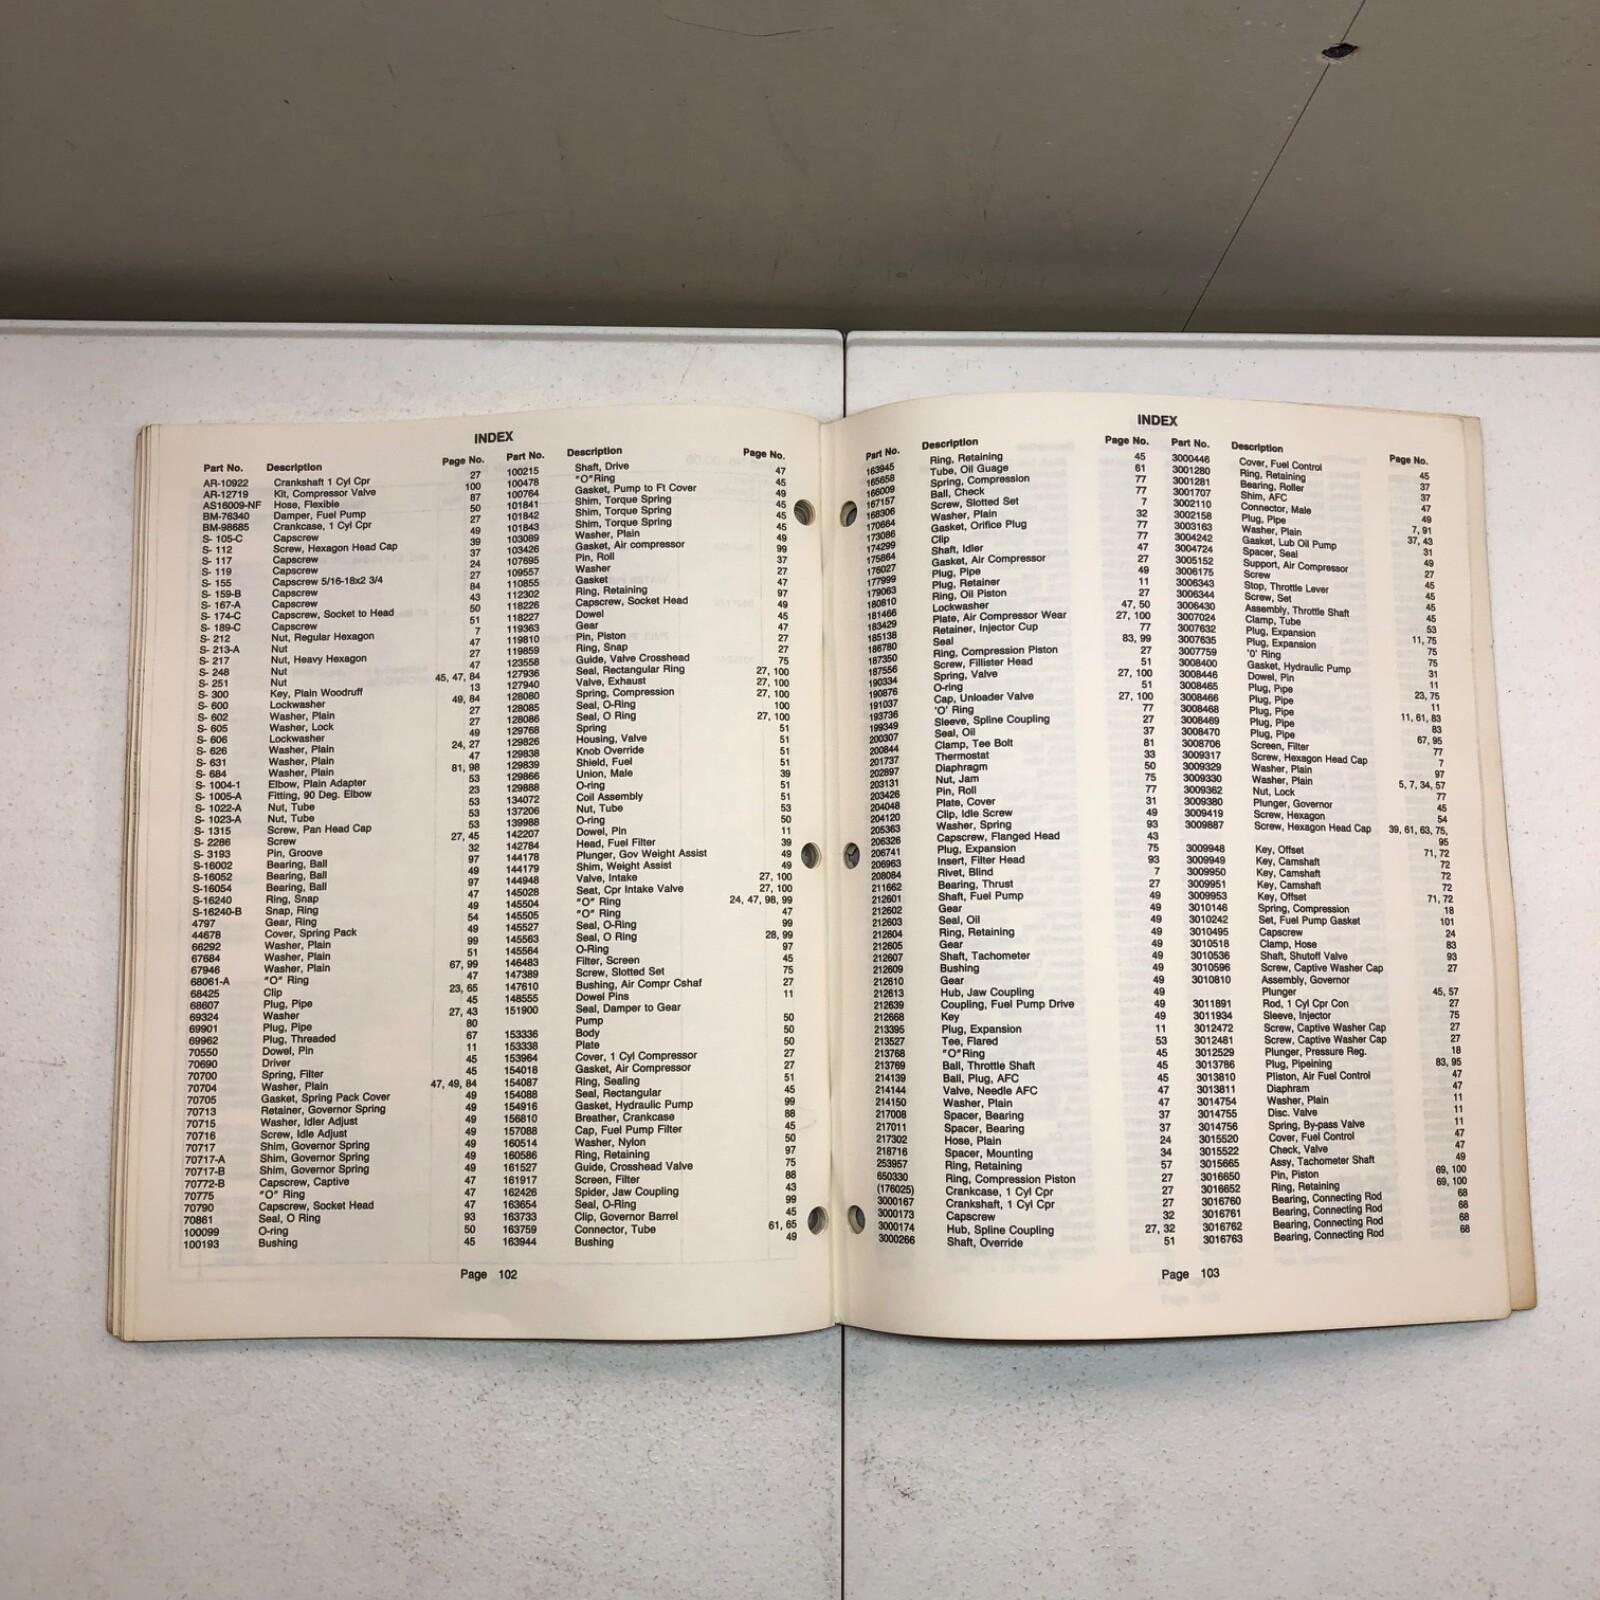 INDEX
Part No. Description
AR-10922 Crankshaft 1 Cyl Cpr
AR-12719 Kit, Compressor Valve
AS16009-NF Hose, Flexible
BM-76340 Damper, Fuel Pump
BM-98685 Crankcase, 1 Cyl Cpr
S- 105-C Capscrew
S- 112 Screw, Hexagon Head Cap
S- 117 Capscrew
S- 119 Capscrew
S- 155 Capscrew 5/16-18x2 3/4
S- 159-B Capscrew
S- 167-A Capscrew
S- 174-C Capscrew, Socket to Head
S- 189-C Capscrew
S- 212 Nut, Regular Hexagon
S- 213-A Nut
S- 217 Nut, Heavy Hexagon
S- 248 Nut
S- 251 Nut
S- 300 Key, Plain Woodruff
S- 600 Lockwasher
S- 602 Washer, Plain
S- 605 Washer, Lock
S- 606 Lockwasher
S- 626 Washer, Plain
S- 631 Washer, Plain
S- 684 Washer, Plain
S- 1004-1 Elbow, Plain Adapter
S- 1005-A Fitting, 90 Deg. Elbow
S- 1022-A Nut, Tube
S- 1023-A Nut, Tube
S- 1315 Screw, Pan Head Cap
S- 2286 Screw
S- 3193 Pin, Groove
S-16002 Bearing, Ball
S-16052 Bearing, Ball
S-16054 Bearing, Ball
S-16240 Ring, Snap
S-16240-B Snap, Ring
4797 Gear, Ring
44678 Cover, Spring Pack
66292 Washer, Plain
67684 Washer, Plain
67946 Washer, Plain
68061-A "O" Ring
68425 Clip
68607 Plug, Pipe
69324 Washer
69901 Plug, Pipe
69962 Plug, Threaded
70550 Dowel, Pin
70690 Driver
70700 Spring, Filter
70704 Washer, Plain
70705 Gasket, Spring Pack Cover
70713 Retainer, Governor Spring
70715 Washer, Idler Adjust
70716 Screw, Idle Adjust
70717 Shim, Governor Spring
70717-A Shim, Governor Spring
70717-B Shim, Governor Spring
70772-B Capscrew, Captive
70775 "O" Ring
70790 Capscrew, Socket Head
70861 Seal, O Ring
100099 O-ring
100193 Bushing
Page No.
27
100
87
50
27
49
39
37
24
27
43
50
51
7
47
27
47
45, 47, 84
13
49, 84
27
27
49
24, 27
47
81, 98
53
23
53
53
27, 45
32
97
49
97
47
49
54
49
99
51
67, 99
47
23, 65
45
27, 43
80
67
11
45
45
47, 49, 84
49
49
49
49
49
49
49
47
47
47
93
50
45
Part No. Description
100215 Shaft, Drive
100478 "O"Ring
100764 Gasket, Pump to Ft Cover
101841 Shim, Torque Spring
101842 Shim, Torque Spring
101843 Shim, Torque Spring
103089 Washer, Plain
103426 Gasket, Air compressor
107695 Pin, Roll
109557 Washer
110855 Gasket
112302 Ring, Retaining
118226 Capscrew, Socket Head
118227 Dowel
119363 Gear
119810 Pin, Piston
119859 Ring, Snap
123558 Guide, Valve Crosshead
127936 Seal, Rectangular Ring
127940 Valve, Exhaust
128080 Spring, Compression
128085 Seal, O-Ring
128086 Seal, O Ring
129768 Spring
129826 Housing, Valve
129838 Knob Override
129839 Shield, Fuel
129866 Union, Male
129888 O-ring
134072 Coil Assembly
137206 Nut, Tube
139988 O-ring
142207 Dowel, Pin
142784 Head, Fuel Filter
144178 Plunger, Gov Weight Assist
144179 Shim, Weight Assist
144948 Valve, Intake
145028 Seat, Cpr Intake Valve
145504 "O" Ring
145505 "O" Ring
145527 Seal, O-Ring
145563 Seal, O Ring
145564 O-Ring
146483 Filter, Screen
147389 Screw, Slotted Set
147610 Bushing, Air Compr Cshaf
148555 Dowel Pins
151900 Seal, Damper to Gear
Pump
153336 Body
153338 Plate
153964 Cover, 1 Cyl Compressor
154018 Gasket, Air Compressor
154087 Ring, Sealing
154088 Seal, Rectangular
154916 Gasket, Hydraulic Pump
156810 Breather, Crankcase
157088 Cap, Fuel Pump Filter
160514 Washer, Nylon
160586 Ring, Retaining
161527 Guide, Crosshead Valve
161917 Screen, Filter
162426 Spider, Jaw Coupling
163654 Seal, O-Ring
163733 Clip, Governor Barrel
163759 Connector, Tube
163944 Bushing
Page No.
47
45
49
45
45
45
49
99
37
27
47
97
49
45
47
27
27
75
27, 100
27, 100
27, 100
100
27, 100
51
51
51
51
39
51
51
53
50
11
39
49
49
27, 100
27, 100
24, 47, 98, 99
47
99
28, 99
97
45
75
27
11
50
50
27
27
51
45
99
88
45
50
97
75
88
43
99
45
61, 65
49
Page 102
INDEX
Part No. Description
163945 Ring, Retaining
165658 Tube, Oil Guage
166009 Spring, Compression
167157 Ball, Check
168306 Screw, Slotted Set
170664 Washer, Plain
173086 Gasket, Orifice Plug
174299 Clip
175864 Shaft, Idler
176027 Gasket, Air Compressor
177999 Plug, Pipe
179063 Plug, Retainer
180810 Ring, Oil Piston
181466 Lockwasher
183429 Plate, Air Compressor Wear
185138 Retainer, Injector Cup
186780 Seal
187350 Ring, Compression Piston
187556 Screw, Fillister Head
190334 Spring, Valve
190876 O-ring
191037 Cap, Unloader Valve
193736 'O' Ring
199349 Sleeve, Spline Coupling
200307 Seal, Oil
200844 Clamp, Tee Bolt
201737 Thermostat
202897 Diaphragm
203131 Nut, Jam
203426 Pin, Roll
204048 Plate, Cover
204120 Clip, Idle Screw
205363 Washer, Spring
206326 Capscrew, Flanged Head
206741 Plug, Expansion
206963 Insert, Filter Head
208084 Rivet, Blind
211662 Bearing, Thrust
212601 Shaft, Fuel Pump
212602 Gear
212603 Seal, Oil
212604 Ring, Retaining
212605 Gear
212607 Shaft, Tachometer
212609 Bushing
212610 Gear
212613 Hub, Jaw Coupling
212639 Coupling, Fuel Pump Drive
212668 Key
213395 Plug, Expansion
213527 Tee, Flared
213768 "O"Ring
213769 Ball, Throttle Shaft
214139 Ball, Plug, AFC
214144 Valve, Needle AFC
214150 Washer, Plain
217008 Spacer, Bearing
217011 Spacer, Bearing
217302 Hose, Plain
218716 Spacer, Mounting
253957 Ring, Retaining
650330 Ring, Compression Piston
(176025) Crankcase, 1 Cyl Cpr
3000167 Crankshaft, 1 Cyl Cpr
3000173 Capscrew
3000174 Hub, Spline Coupling
3000266 Shaft, Override
Page No.
45
61
77
77
7
32
77
77
47
27
49
11
27
47, 50
27, 100
77
83, 99
27
51
27, 100
51
27, 100
77
27
37
81
33
50
75
77
31
49
93
43
75
93
7
27
49
49
49
49
49
49
49
49
49
49
49
11
53
45
45
47
47
47
37
37
24
34
57
27
27
27
32
27, 32
51
Part No. Description
3000446 Cover, Fuel Control
3001280 Ring, Retaining
3001281 Bearing, Roller
3001707 Shim, AFC
3002110 Connector, Male
3002158 Plug, Pipe
3003163 Washer, Plain
3004242 Gasket, Lub Oil Pump
3004724 Spacer, Seal
3005152 Support, Air Compressor
3006175 Screw
3006343 Stop, Throttle Lever
3006344 Screw, Set
3006430 Assembly, Throttle Shaft
3007024 Clamp, Tube
3007632 Plug, Expansion
3007635 Plug, Expansion
3007759 'O' Ring
3008400 Gasket, Hydraulic Pump
3008446 Dowel, Pin
3008465 Plug, Pipe
3008466 Plug, Pipe
3008468 Plug, Pipe
3008469 Plug, Pipe
3008470 Plug, Pipe
3008706 Screen, Filter
3009317 Screw, Hexagon Head Cap
3009329 Washer, Plain
3009330 Washer, Plain
3009362 Nut, Lock
3009380 Plunger, Governor
3009419 Screw, Hexagon
3009887 Screw, Hexagon Head Cap
3009948 Key, Offset
3009949 Key, Camshaft
3009950 Key, Camshaft
3009951 Key, Camshaft
3009953 Key, Offset
3010146 Spring, Compression
3010242 Set, Fuel Pump Gasket
3010495 Capscrew
3010518 Clamp, Hose
3010536 Shaft, Shutoff Valve
3010596 Screw, Captive Washer Cap
3010810 Assembly, Governor
Plunger
3011891 Rod, 1 Cyl Cpr Con
3011934 Sleeve, Injector
3012472 Screw, Captive Washer Cap
3012481 Screw, Captive Washer Cap
3012529 Plunger, Pressure Reg.
3013786 Plug, Pipeining
3013810 Pliston, Air Fuel Control
3013811 Diaphram
3014754 Washer, Plain
3014755 Disc. Valve
3014756 Spring, By-pass Valve
3015520 Cover, Fuel Control
3015522 Check, Valve
3015665 Assy, Tachometer Shaft
3016650 Pin, Piston
3016652 Ring, Retaining
3016760 Bearing, Connecting Rod
3016761 Bearing, Connecting Rod
3016762 Bearing, Connecting Rod
3016763 Bearing, Connecting Rod
Page No.
45
37
37
47
49
7, 91
37, 43
31
49
27
45
45
45
45
53
11, 75
75
75
31
11
23, 75
11
11, 61, 83
83
67, 95
77
7
97
5, 7, 34, 57
77
45
54
39, 61, 63, 75,
95
71, 72
72
72
72
71, 72
18
101
24
83
93
27
45, 57
27
75
27
27
18
83, 95
47
47
11
11
11
47
49
69, 100
69, 100
68
68
68
68
Page 103